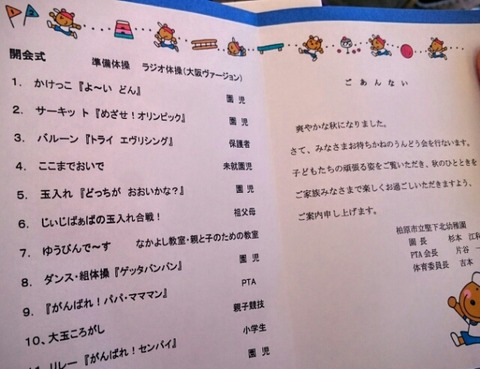 開会式
準備体操 ラジオ体操(大阪ヴァージョン)
1. かけっこ『よ~い どん』 園 児
2. サーキット『めざせ!オリンピック』 園 児
3. バルーン『トライ エヴリシング』 保護者
4. ここまでおいで 未就園児
5. 玉入れ『どっちが おおいかな?』 園 児
6. じぃじばぁばの玉入れ合戦! 祖父母
7. ゆうびんで~す なかよし教室・親と子のための教室
8. ダンス・組体操『ゲッタバンバン』 園 児
9. 『がんばれ!パパ・マママン』 PTA
10、大玉ころがし 親子競技
小学生
リレー『がんばれ!センパイ』 園 児
ごあんない
爽やかな秋になりました。
さて、みなさまお待ちかねのうんどう会を行ないます。
子どもたちの頑張る姿をご覧いただき、秋のひとときを
ご家族みなさまで楽しくお過ごしいただきますよう、
ご案内申し上げます。
柏原市立堅下北幼稚園
園 長 杉本 江利
PTA会長 片谷
体育委員長 吉本